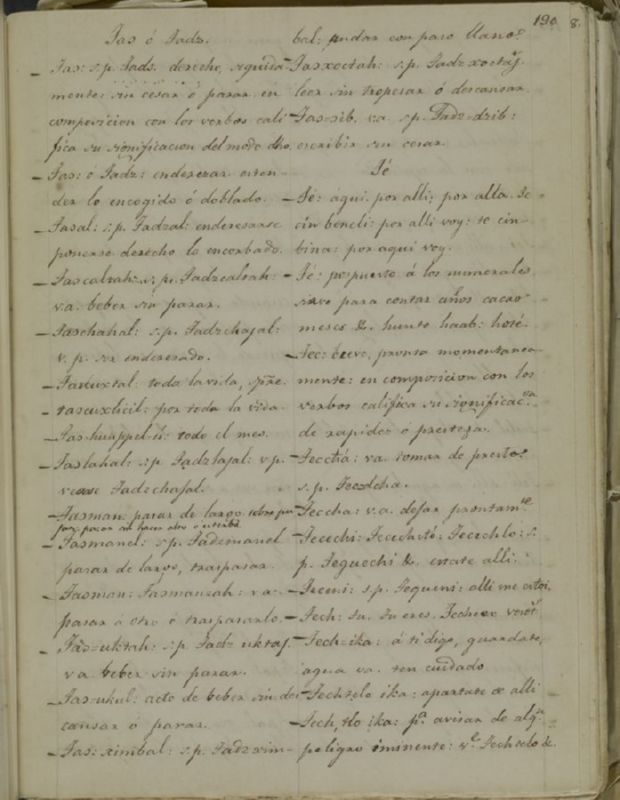 190 8.
Tas ó Tadz.
— Tas: s.p. Tads. derecho, seguida-
mente: sin cesar ó parar. en
composicion con los verbos cali
fica su significacion del modo dho.
— Tas: ó Tadz: enderezar exten-
der lo encogido ó doblado.
— Tasal: s.p. Tadzal: enderesarse
ponerse derecho lo encorbado.
— Tascalzah: s.p. Tadzcalzah:
v.a. beber sin parar.
— Taschahal: s.p. Tadzchajal:
v.p. ser enderezado.
toda la vida,
por toda la vida.
— Tas-huappel-ú: todo el mes.
— Taslahal: s.p. Tadzlajal: v.p.
vease Tadzchajal.
— Tasman: parar de largo
— Tasmanel: s.p. Tadzmanel
parar de largo, traspasar.
— Tasman: Tasmanzah: v.a.
pasar á otro ó traspasarlo.
— Tas-uktah: s.p. Tadz uktaj.
v.a. beber sin parar.
— Tas-ukul: acto de beber sin des
cansar ó parar.
— Tas: ximbal: s.p. Tadzxim-
bal: andar con paso llano.
— Tasxoctah: s.p. Tadzxoctaj.
leer sin tropesar ó descansar.
— Tas-sib. v.a. s.p. Tadz-dzib:
escribir sin cesar.
Té
— Té: aqui. por alli: por alla. te
cin bencli: por alli voy: te cin
bina: por aqui voy.
— Té: pospuesto á los numerales
sirve para contar años cacao
meses &. hunte haab: hoté.
— Tec: breve, pronto momentanea-
mente: en composicion con los
verbos califica su significac.on
de rapidés ó presteza.
— Tecchá: v.a. tomar de presto:
s.p.
— Teccha: v.a. dejar prontam.te
— Tecechi: Tecechlo: s.
p. Tequechi &. estate alli.
— Teceni: s.p. Tequeni: alli me estoi.
— Tech: tu. tu eres.
— Tech-ika: á ti digo, guardate,
agua va. ten cuidado
— Techzelo ika: apartate de alli
— Tech, tlo ika: p.a avisar de alg.n
peligro iminente: v.e Techtelo &.